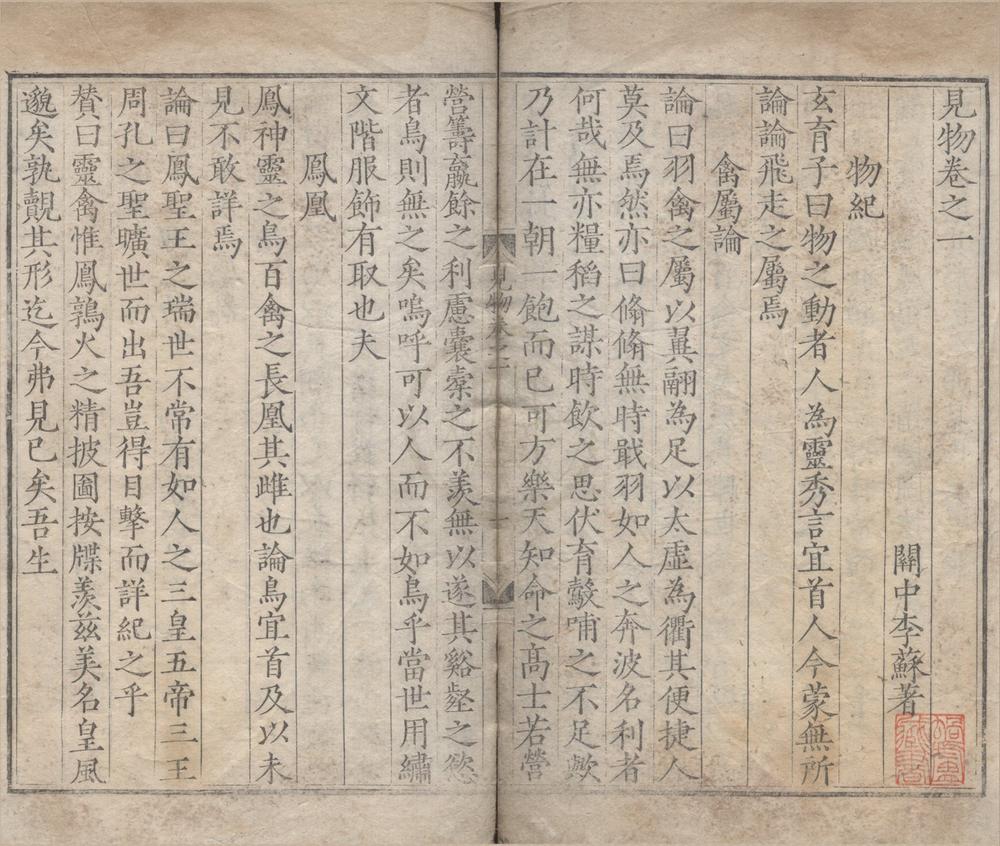 見物卷之一
關中李蘇著
物紀
玄育子曰物之動者人為靈秀言宜首人今蒙無所
論論飛走之屬焉
禽屬論
論曰羽禽之屬以翼翮為足以太虛為衢其便捷人
莫及焉然亦曰翛翛無時戢羽如人之奔波名利者
何哉無亦糧稻之謀時飲之思伏育鷇哺之不足歟
乃計在一朝一飽而已可方樂天知命之高士若營
見物卷之一
一
營籌嬴餘之利慮囊橐之不羨無以遂其谿壑之慾
者鳥則無之矣嗚呼可以人而不如鳥乎當世用繡
文階服飾有取也夫
鳳凰
鳳神靈之鳥百禽之長凰其雌也論鳥宜首及以未
見不敢詳焉
論曰鳳聖王之瑞世不常有如人之三皇五帝三王
周孔之聖曠世而出吾豈得目擊而詳紀之乎
贊曰靈禽惟鳳鶉火之精披圖按牒羨茲美名皇風
邈矣孰覿其形迄今弗見已矣吾生